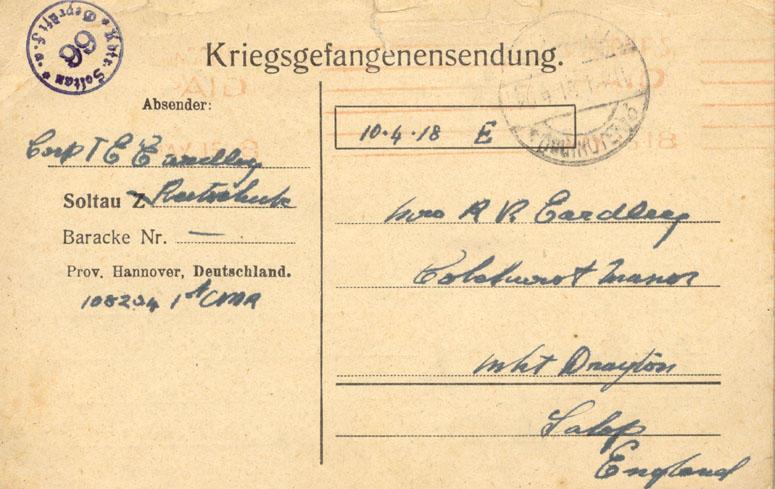 Kgfr. Soltau * Geprüft F. a. *
66
Kriegsgefangenensendung.
Absender:
Corp T E Eardley
Soltau Z
Baracke Nr. —
Prov. Hannover, Deutschland.
108234 1st CMR
10.4.18 E
Mrs R R Eardley
Colehurst Manor
Mkt Drayton
Salop
England